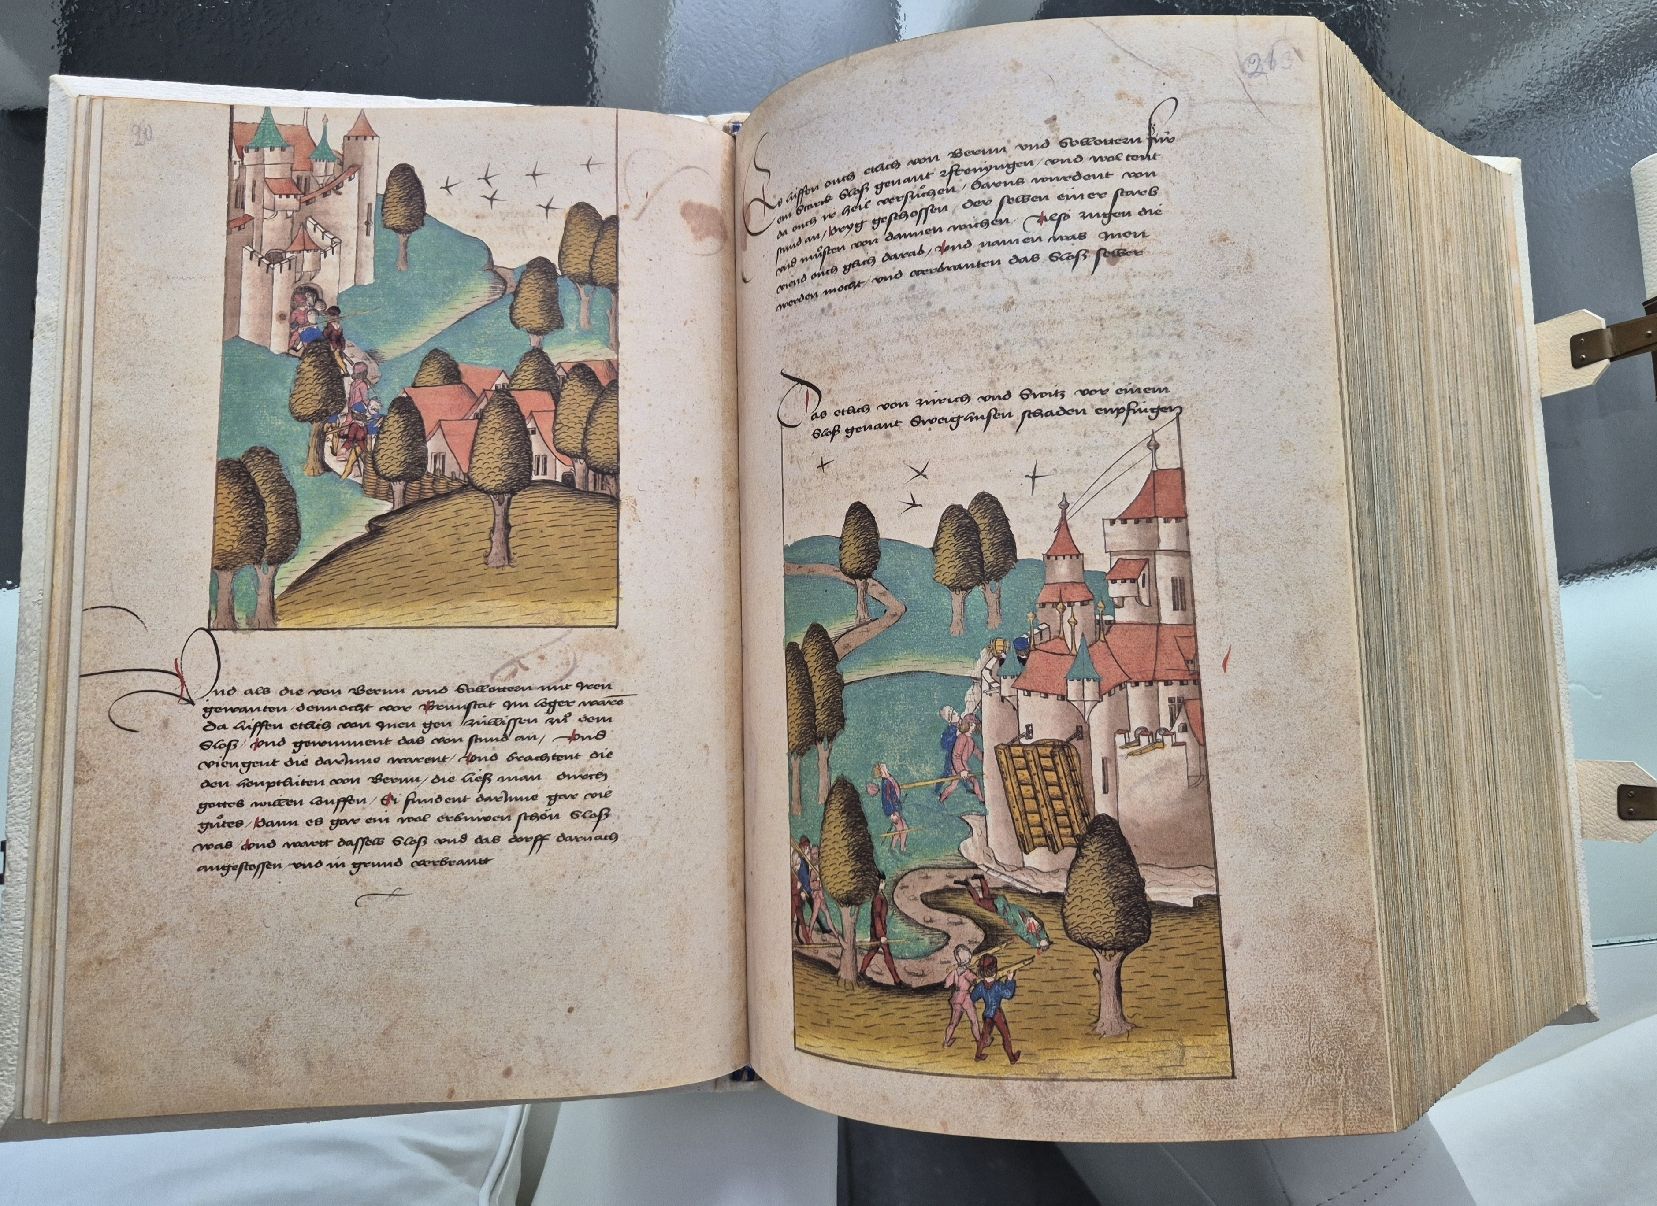 90
Und als die von Bernn und Sollottern mit iren
gewanten dennocht vor Brunstat im leger warē
da luffen etlich von inen gen zuwissen zů dem
Sloß, und gewunnent das von stund an, Und
viengent die darinne warent, und brachtent die
den houptluten von Bernn, die ließ man durch
gottes willen louffen, Si fundent darinne gar vil
gůtes, dann es gar ein wol erbuwen schön Sloß
was und wart dasselb Sloß und das dorff darnach
angestossen und in grund verbrant
263
Es luffen ouch etlich von Bernn und Sollottern für
ein starck Sloß genant und woltent
da ouch ir heil versůchen, darus wurdent von
stund an, dryg geschossen, der selben einer starb
und můsten von dannen wichen. Also zugen die
viend ouch glich darab, und namen was inen
werden mocht, und verbranten das Sloß selber
Das etlich von zürich und Switz vor einem
Sloß genant Sweighusen schaden enpfingen